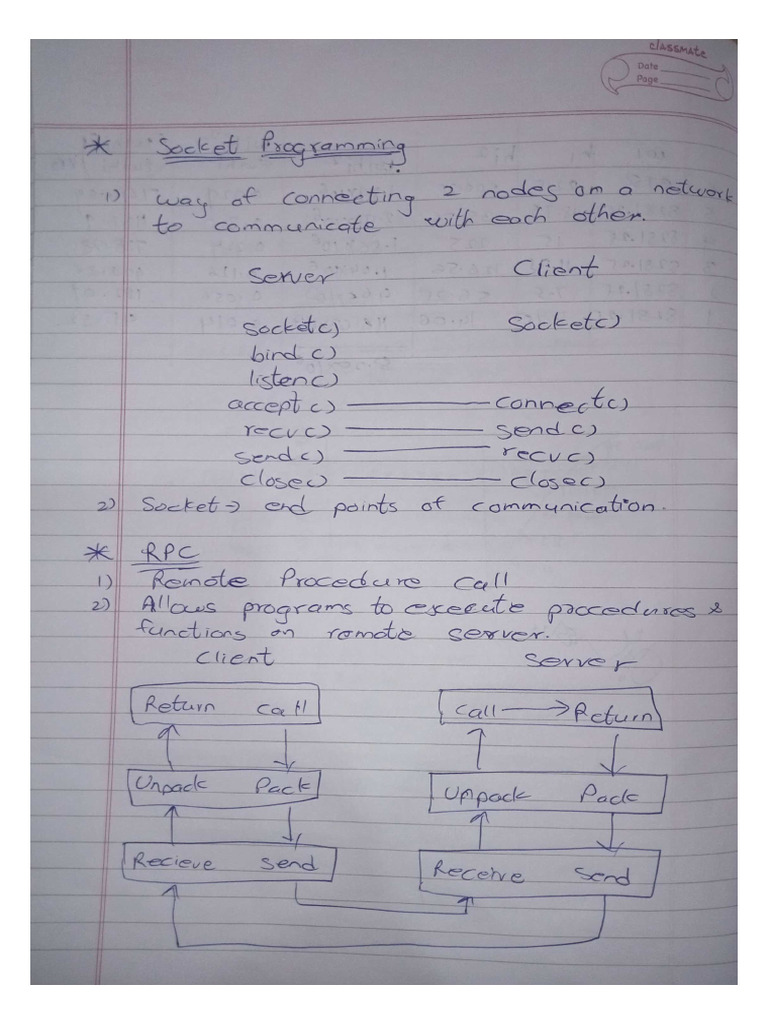 classmate
Date
Page
* Socket Programming
1) way of connecting 2 nodes on a network
to communicate with each other.
Server Client
Socket() Socket()
bind()
listen()
accept() connect()
recv() send()
send() recv()
close() close()
2) Socket → end points of communication.
* RPC
1) Remote Procedure Call
2) Allows programs to execute procedures &
functions on remote server.
Client Server
Return Call Call → Return
Unpack Pack Unpack Pack
Recieve Send Receive Send